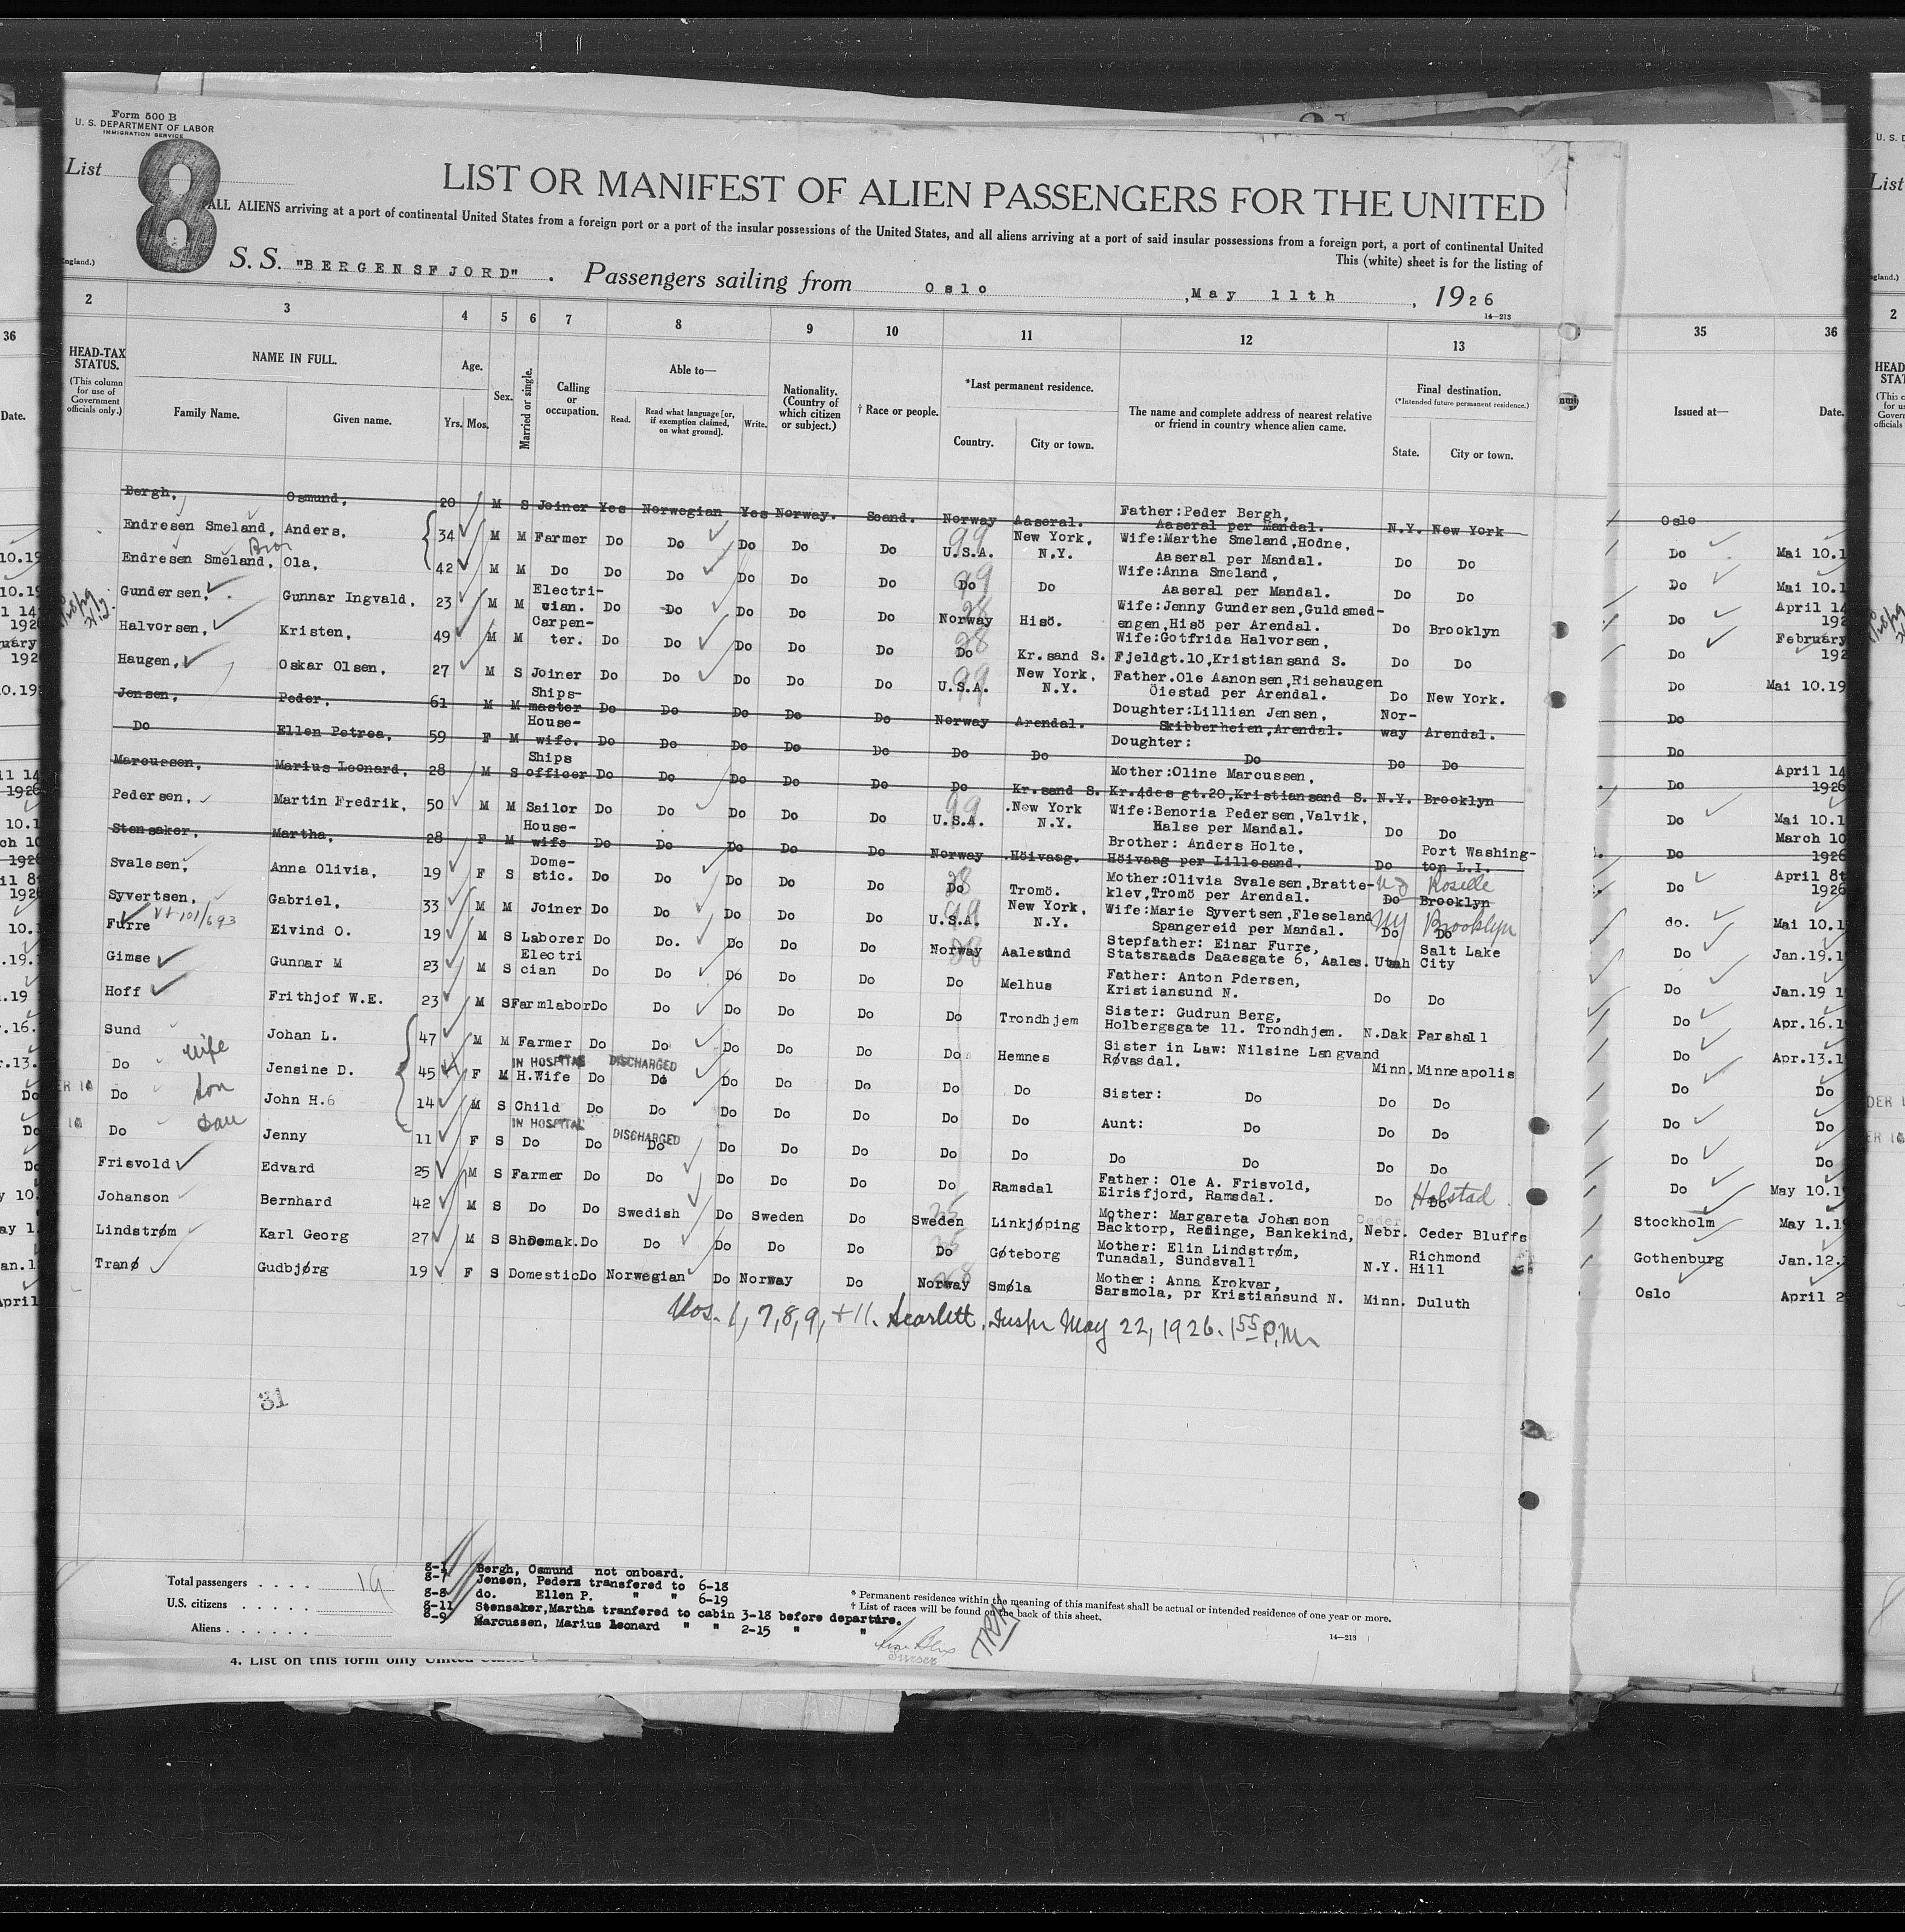 Form 500 B
U. S. DEPARTMENT OF LABOR
IMMIGRATION SERVICE
List 8
LIST OR MANIFEST OF ALIEN PASSENGERS FOR THE UNITED
ALL ALIENS arriving at a port of continental United States from a foreign port or a port of the insular possessions of the United States, and all aliens arriving at a port of said insular possessions from a foreign port, a port of continental United
This (white) sheet is for the listing of
S. S. "BERGENSFJORD". Passengers sailing from Oslo, May 11th, 1926
14—213
2 3 4 5 6 7 8 9 10 11 12 13 35 36
HEAD-TAX STATUS. (This column for use of Government officials only.)
NAME IN FULL. Family Name. Given name.
Age. Yrs. Mos.
Sex.
Married or single.
Calling or occupation.
Able to— Read. Read what language [or, if exemption claimed, on what ground]. Write.
Nationality. (Country of which citizen or subject.)
† Race or people.
*Last permanent residence. Country. City or town.
The name and complete address of nearest relative or friend in country whence alien came.
Final destination. (*Intended future permanent residence.) State. City or town.
Issued at— Date.
Bergh, Osmund, 20 M S Joiner Yes Norwegian Yes Norway. Scand. Norway Aaseral. Father:Peder Bergh, Aaseral per Mandal. N.Y. New York Oslo
Endresen Smeland, Anders, 34 M M Farmer Do Do Do Do Do 99 U.S.A. New York, N.Y. Wife:Marthe Smeland,Hodne, Aaseral per Mandal. Do Do Do Mai 10.1
Endresen Smeland, Ola, 42 M M Do Do Do Do Do Do 99 Do Do Wife:Anna Smeland, Aaseral per Mandal. Do Do Do Mai 10.1
Gundersen, Gunnar Ingvald, 23 M M Electri-cian. Do Do Do Do Do 28 Norway Hisö. Wife:Jenny Gundersen,Guldsmed-engen,Hisö per Arendal. Do Brooklyn Do April 14 192
Halvorsen, Kristen, 49 M M Carpen-ter. Do Do Do Do Do 28 Do Kr.sand S. Wife:Gotfrida Halvorsen, Fjeldgt.10,Kristiansand S. Do Do Do February 192
Haugen, Oskar Olsen, 27 M S Joiner Do Do Do Do Do 99 U.S.A. New York, N.Y. Father.Ole Aanonsen,Risehaugen Öiestad per Arendal. Do New York. Do Mai 10.19
Jensen, Peder, 61 M M Ships-master Do Do Do Do Do Norway Arendal. Doughter:Lillian Jensen, Skibberheien,Arendal. Nor-way Arendal. Do
Do Ellen Petrea, 59 F M House-wife. Do Do Do Do Do Do Do Doughter: Do Do Do Do
Marcussen, Marius Leonard, 28 M S Ships officer Do Do Do Do Do Do Kr.sand S. Mother:Oline Marcussen, Kr.4des gt.20,Kristiansand S. N.Y. Brooklyn Do April 14 1926
Pedersen, Martin Fredrik, 50 M M Sailor Do Do Do Do Do 99 U.S.A. New York N.Y. Wife:Benoria Pedersen,Valvik, Halse per Mandal. Do Do Do Mai 10.1
Stensaker, Martha, 28 F M House-wife Do Do Do Do Do Norway Höivaag. Brother: Anders Holte, Höivaag per Lillesand. Do Port Washing-ton L.I. Do March 10 1926
Svalesen, Anna Olivia, 19 F S Dome-stic. Do Do Do Do Do 28 Do Tromö. Mother:Olivia Svalesen,Bratte-klev,Tromö per Arendal. Do Brooklyn NJ Roselle Do April 8t 1926
Syvertsen, Gabriel, 33 M M Joiner Do Do Do Do Do 99 U.S.A. New York, N.Y. Wife:Marie Syvertsen,Fleseland Spangereid per Mandal. Do Do NY Brooklyn do. Mai 10.1
Furre Eivind O. 19 M S Laborer Do Do. Do Do Do 28 Norway Aalesund Stepfather: Einar Furre, Statsraads Daaesgate 6, Aales. Utah Salt Lake City Do Jan.19.1
Gimse Gunnar M 23 M S Electri cian Do Do Do Do Do Do Melhus Father: Anton Pdersen, Kristiansund N. Do Do Do Jan.19 1
Hoff Frithjof W.E. 23 M S Farmlabor Do Do Do Do Do Do Trondhjem Sister: Gudrun Berg, Holbergsgate 11. Trondhjem. N.Dak Parshall Do Apr.16.1
Sund Johan L. 47 M M Farmer Do Do Do Do Do Do Hemnes Sister in Law: Nilsine Langvand Røvasdal. Minn. Minneapolis Do Apr.13.1
Do wife Jensine D. 45 F M IN HOSPITAL H.Wife Do DISCHARGED Do Do Do Do Do Do Sister: Do Do Do Do Do
Do son John H. 14 M S Child Do Do Do Do Do Do Do Aunt: Do Do Do Do Do
Do Jenny 11 F S IN HOSPITAL Do Do DISCHARGED Do Do Do Do Do Do Do Do Do Do Do Do
Frisvold Edvard 25 M S Farmer Do Do Do Do Do Do Ramsdal Father: Ole A. Frisvold, Eirisfjord, Ramsdal. Do Do Halstad Do May 10.1
Johanson Bernhard 42 M S Do Do Swedish Do Sweden Do Sweden Linkjøping Mother: Margareta Johanson Bäcktorp, Redinge, Bankekind, Nebr. Ceder Bluffs Stockholm May 1.1
Lindstrøm Karl Georg 27 M S Shoemak. Do Do Do Do Do Do Gøteborg Mother: Elin Lindstrøm, Tunadal, Sundsvall N.Y. Richmond Hill Gothenburg Jan.12.
Tranø Gudbjørg 19 F S Domestic Do Norwegian Do Norway Do 28 Norway Smøla Mother: Anna Krokvar, Sarsmola, pr Kristiansund N. Minn. Duluth Oslo April 2
Nos. 1, 7, 8, 9, + 11. Scarlett, Inspr May 22, 1926. 1 55 P.M.
31
Total passengers . . . . 19
U.S. citizens . . . . .
Aliens . . . . . .
8-1 Bergh, Osmund not onboard.
8-7 Jensen, Peders transfered to 6-18
8-8 do. Ellen P. " " 6-19
8-11 Stensaker,Martha tranfered to cabin 3-18 before departure.
8-9 Marcussen, Marius Leonard " " 2-15 " "
* Permanent residence within the meaning of this manifest shall be actual or intended residence of one year or more.
† List of races will be found on the back of this sheet.
14—213
Purser
4. List on this form only United States